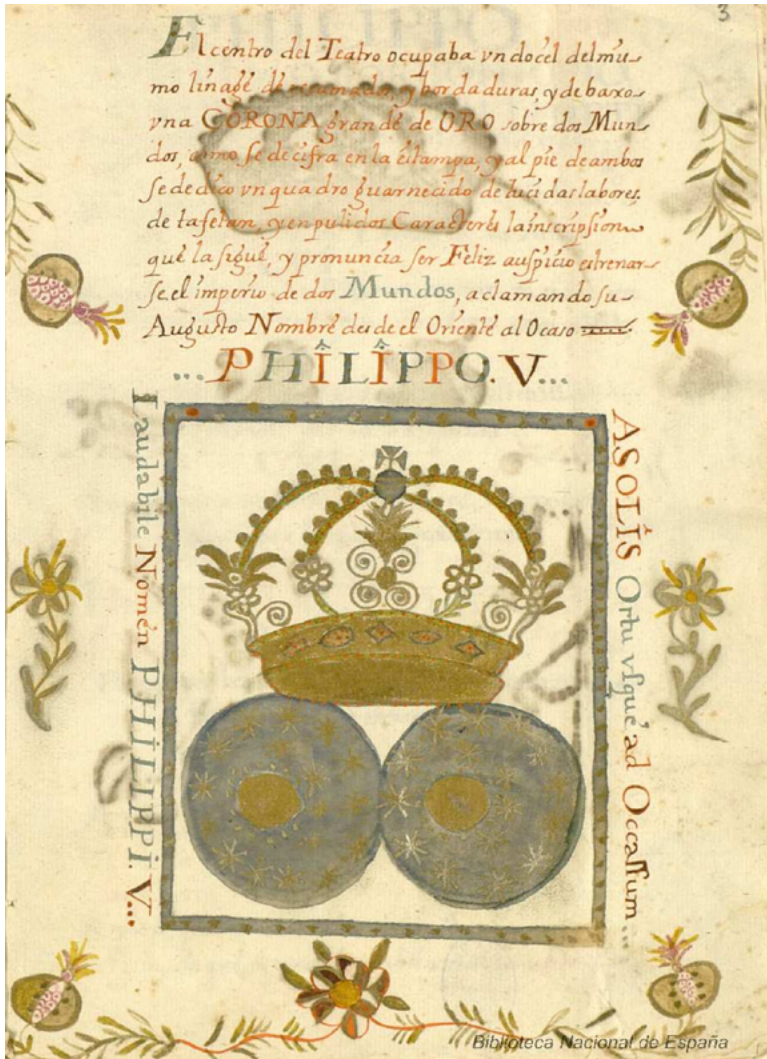 3
El centro del Teatro ocupaba vn docel del mis-
mo linage de recamados, y bordaduras, y debaxo
vna CORONA grande de ORO sobre dos Mun-
dos, como se decifra en la estampa, y al pie de ambos
se dedico vn quadro guarnecido de lucidas labores,
de tafetan, y en pulidos Caracteres la inscripsion
que la sigue, y pronuncia ser Feliz auspicio estrenar-
se el imperio de dos Mundos, aclamando su
Augusto Nombre desde el Oriente al Ocaso
...PHILIPPO. V...
A SOLIS Ortu vsque ad Occassum...
Laudabile Nomen PHILIPPI. V...
Biblioteca Nacional de España